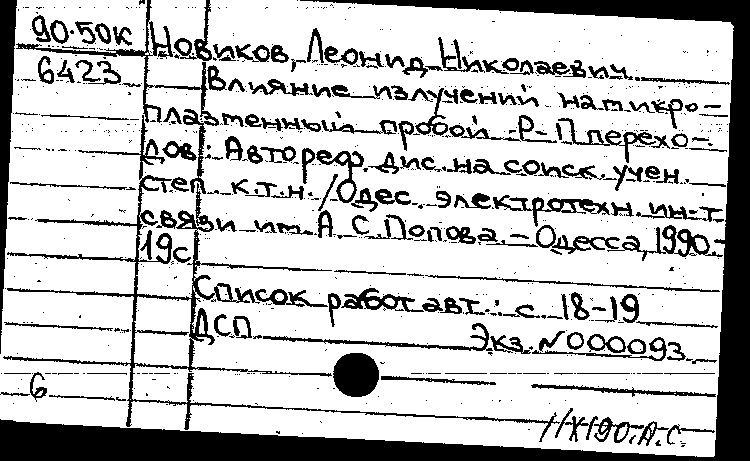 90-50к
6423
Новиков, Леонид Николаевич
Влияние излучений на микро-
плазменный пробой Р-П перехо-
дов: Автореф. дис. на соиск. учен.
степ. к.т.н. /Одес. электротехн. ин-т
связи им. А. С. Попова. - Одесса, 1990. -
19с
Список работ авт.: с. 18-19
ДСП Экз. №000093
6
11/Х190. А.С.